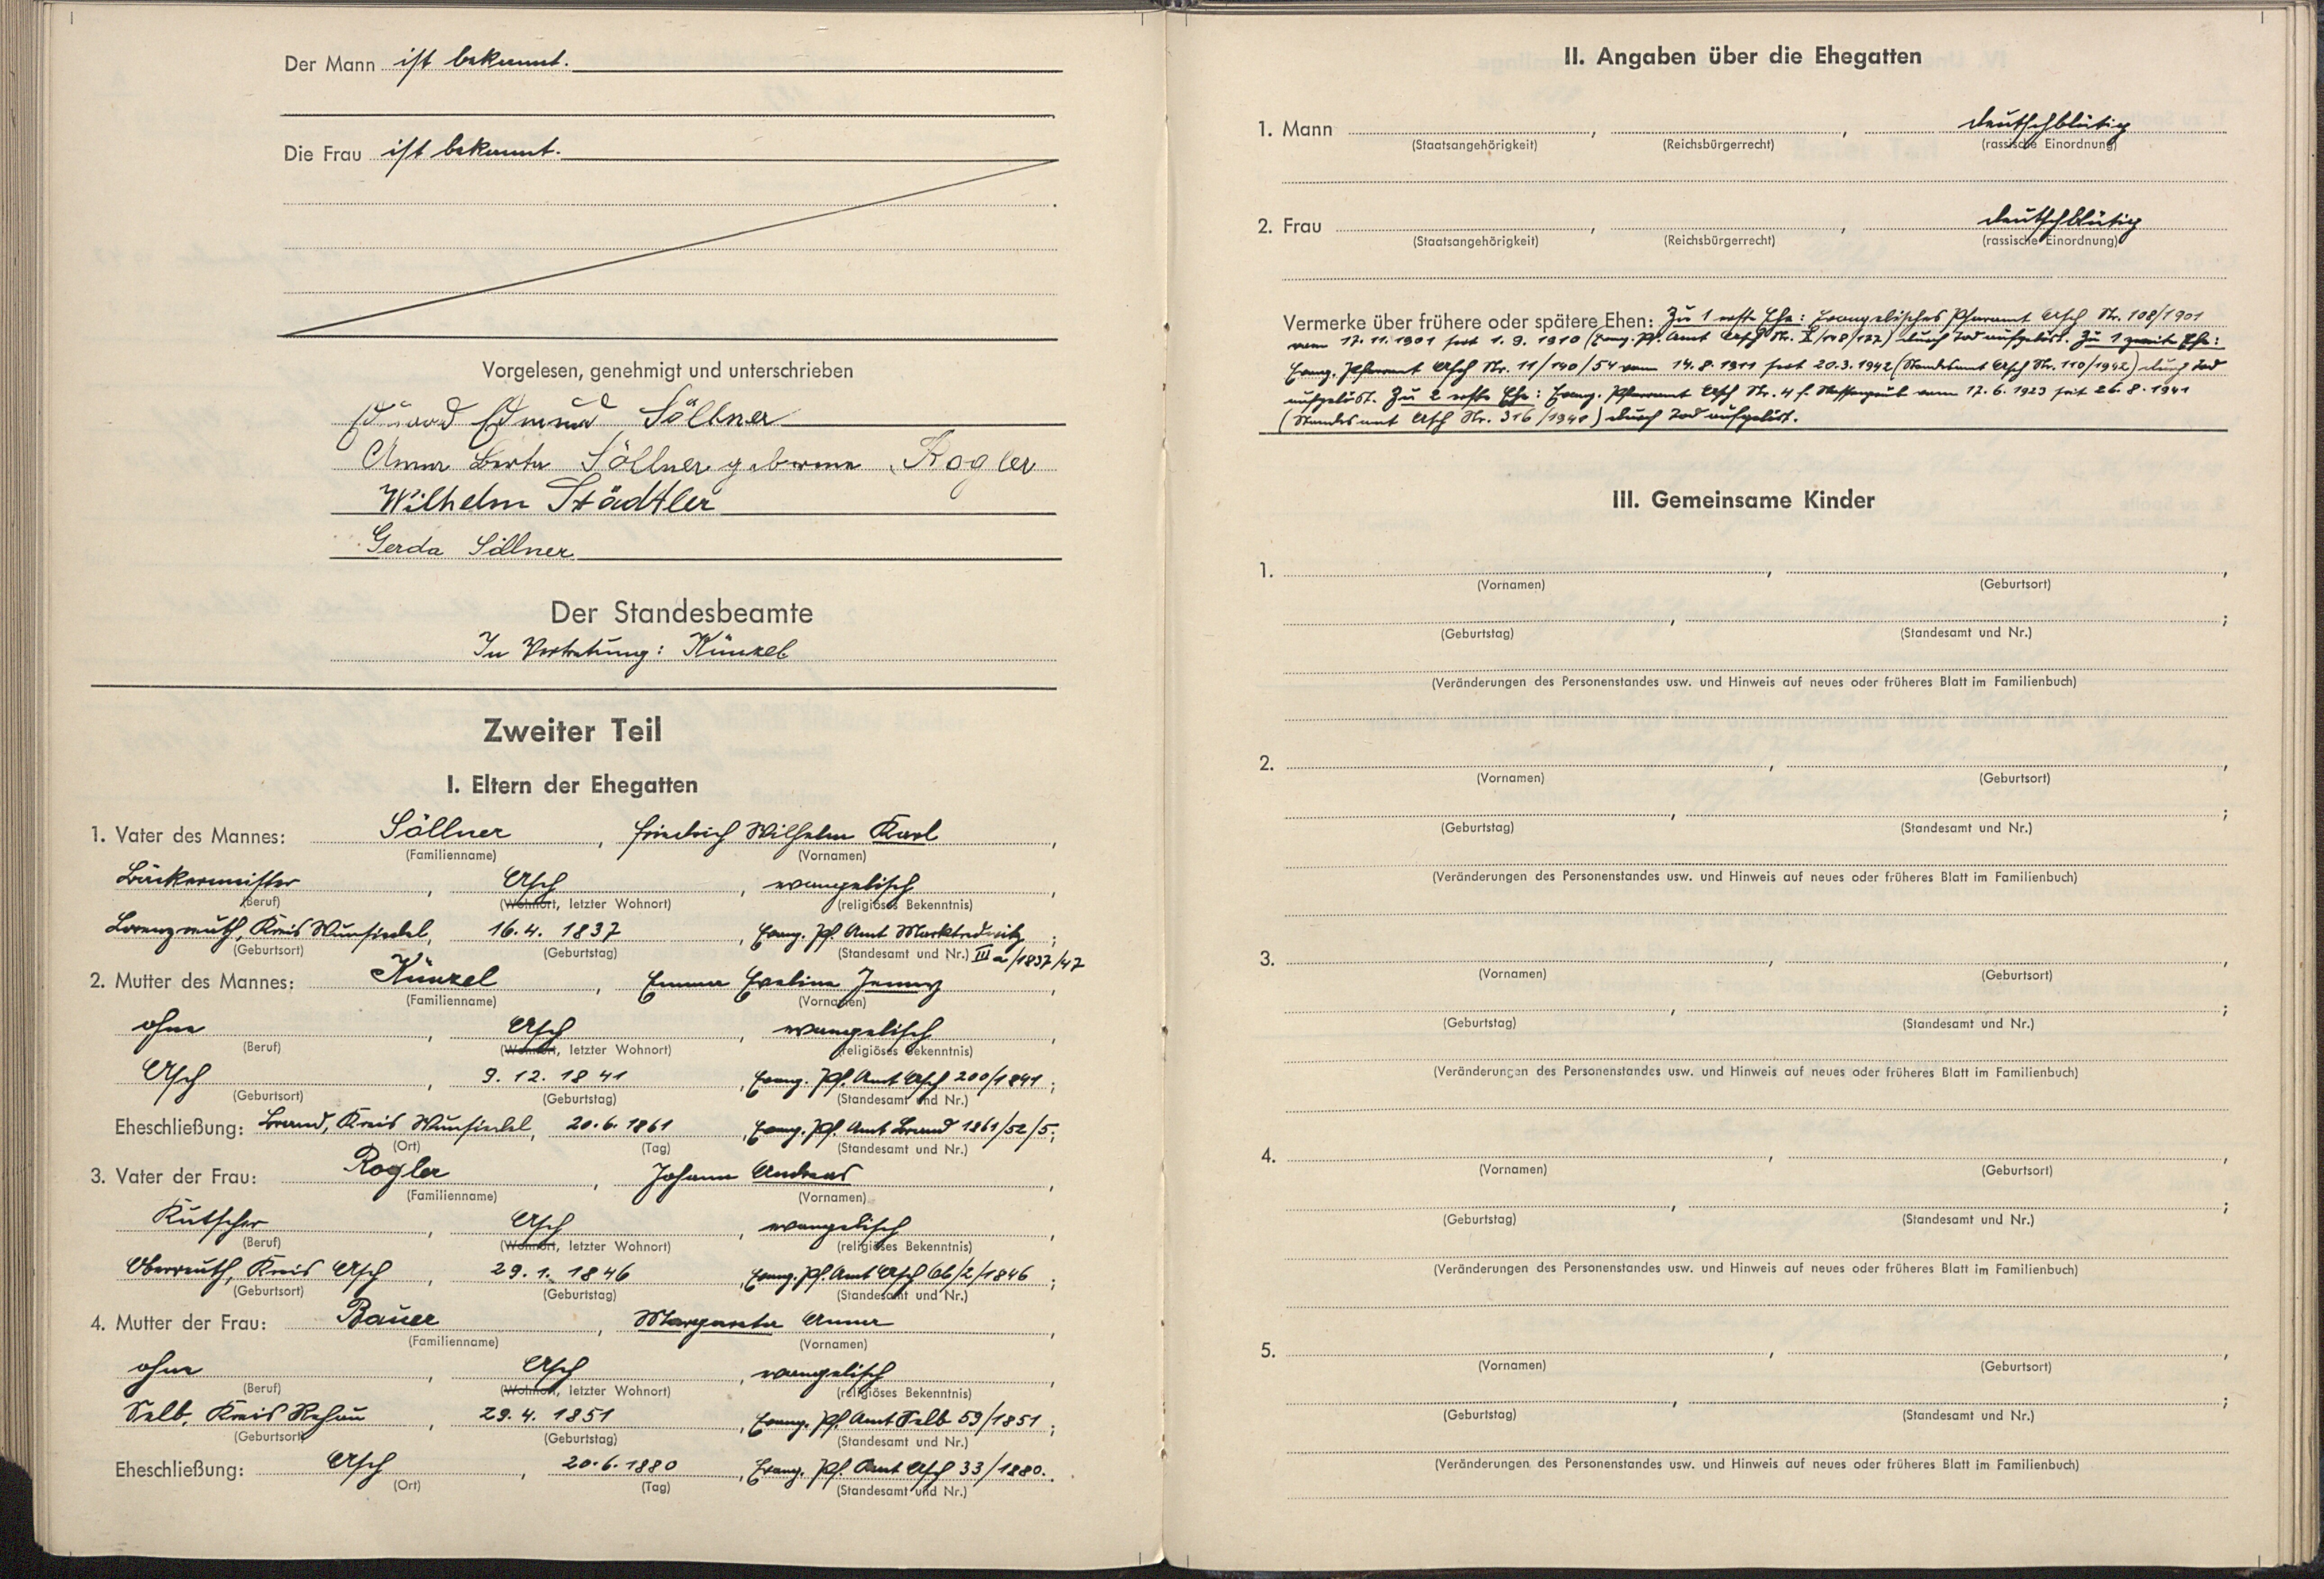 Der Mann ist bekannt.
Die Frau ist bekannt.
Vorgelesen, genehmigt und unterschrieben
Eduard Edmund Söllner
Anna Berta Söllner geborene Rogler
Wilhelm Städtler
Gerda Söllner
Der Standesbeamte
In Vertretung: Künzel
Zweiter Teil
I. Eltern der Ehegatten
1. Vater des Mannes: Söllner, Friedrich Wilhelm Karl,
(Familienname) (Vornamen)
Bäckermeister, Asch, evangelisch,
(Beruf) (Wohnort, letzter Wohnort) (religiöses Bekenntnis)
Lorenzreuth, Kreis Wunsiedel, 16. 4. 1837, Evang. Pf. Amt Marktredwitz;
(Geburtsort) (Geburtstag) (Standesamt und Nr.) III a/1837/47
2. Mutter des Mannes: Künzel, Emma Eveline Jenny,
(Familienname) (Vornamen)
ohne, Asch, evangelisch,
(Beruf) (Wohnort, letzter Wohnort) (religiöses Bekenntnis)
Asch, 9. 12. 1841, Evang. Pf. Amt Asch 200/1841;
(Geburtsort) (Geburtstag) (Standesamt und Nr.)
Eheschließung: Brand, Kreis Wunsiedel, 20. 6. 1861, Evang. Pf. Amt Brand 1861/52/5;
(Ort) (Tag) (Standesamt und Nr.)
3. Vater der Frau: Rogler, Johann Andreas,
(Familienname) (Vornamen)
Kutscher, Asch, evangelisch,
(Beruf) (Wohnort, letzter Wohnort) (religiöses Bekenntnis)
Oberreuth, Kreis Asch, 29. 1. 1846, Evang. Pf. Amt Asch 66/2/1846;
(Geburtsort) (Geburtstag) (Standesamt und Nr.)
4. Mutter der Frau: Bauer, Margareta Anna,
(Familienname) (Vornamen)
ohne, Asch, evangelisch,
(Beruf) (Wohnort, letzter Wohnort) (religiöses Bekenntnis)
Selb, Kreis Rehau, 29. 4. 1851, Evang. Pf. Amt Selb 59/1851;
(Geburtsort) (Geburtstag) (Standesamt und Nr.)
Eheschließung: Asch, 20. 6. 1880, Evang. Pf. Amt Asch 33/1880.
(Ort) (Tag) (Standesamt und Nr.)
II. Angaben über die Ehegatten
1. Mann , , deutschblütig
(Staatsangehörigkeit) (Reichsbürgerrecht) (rassische Einordnung)
2. Frau , , deutschblütig
(Staatsangehörigkeit) (Reichsbürgerrecht) (rassische Einordnung)
Vermerke über frühere oder spätere Ehen: Zu 1 erste Ehe: Evangelisches Pfarramt Asch Nr. 108/1901
vom 17. 11. 1901 seit 1. 9. 1910 (Evang. Pf. Amt Asch Nr. durch Tod aufgelöst. Zu 1 zweite Ehe:
Evang. Pfarramt Asch Nr. 11/140/54 vom 14. 8. 1911 seit 20. 3. 1942 (Standesamt Asch Nr. 110/1942) durch Tod
aufgelöst. Zu 2 erste Ehe: Evang. Pfarramt Asch Nr. 4 f. Nassengrub vom 17. 6. 1923 seit 26. 8. 1941
(Standesamt Asch Nr. 316/1941) durch Tod aufgelöst.
III. Gemeinsame Kinder
1. , ,
(Vornamen) (Geburtsort)
, ;
(Geburtstag) (Standesamt und Nr.)
(Veränderungen des Personenstandes usw. und Hinweis auf neues oder früheres Blatt im Familienbuch)
2. , ,
(Vornamen) (Geburtsort)
, ;
(Geburtstag) (Standesamt und Nr.)
(Veränderungen des Personenstandes usw. und Hinweis auf neues oder früheres Blatt im Familienbuch)
3. , ,
(Vornamen) (Geburtsort)
, ;
(Geburtstag) (Standesamt und Nr.)
(Veränderungen des Personenstandes usw. und Hinweis auf neues oder früheres Blatt im Familienbuch)
4. , ,
(Vornamen) (Geburtsort)
, ;
(Geburtstag) (Standesamt und Nr.)
(Veränderungen des Personenstandes usw. und Hinweis auf neues oder früheres Blatt im Familienbuch)
5. , ,
(Vornamen) (Geburtsort)
, ;
(Geburtstag) (Standesamt und Nr.)
(Veränderungen des Personenstandes usw. und Hinweis auf neues oder früheres Blatt im Familienbuch)